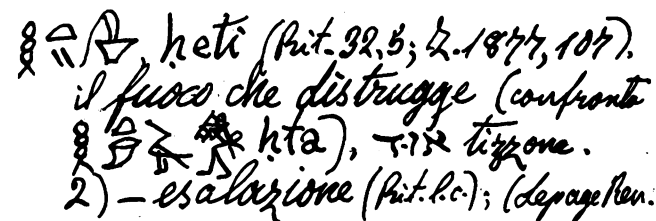 , ḥeti (Rit. 32, 5; Z. 1877, 107).
il fuoco che distrugge (confronta
ḥta), tizzone.
2) – esalazione (Rit. l.c.); (Lepage Ren.